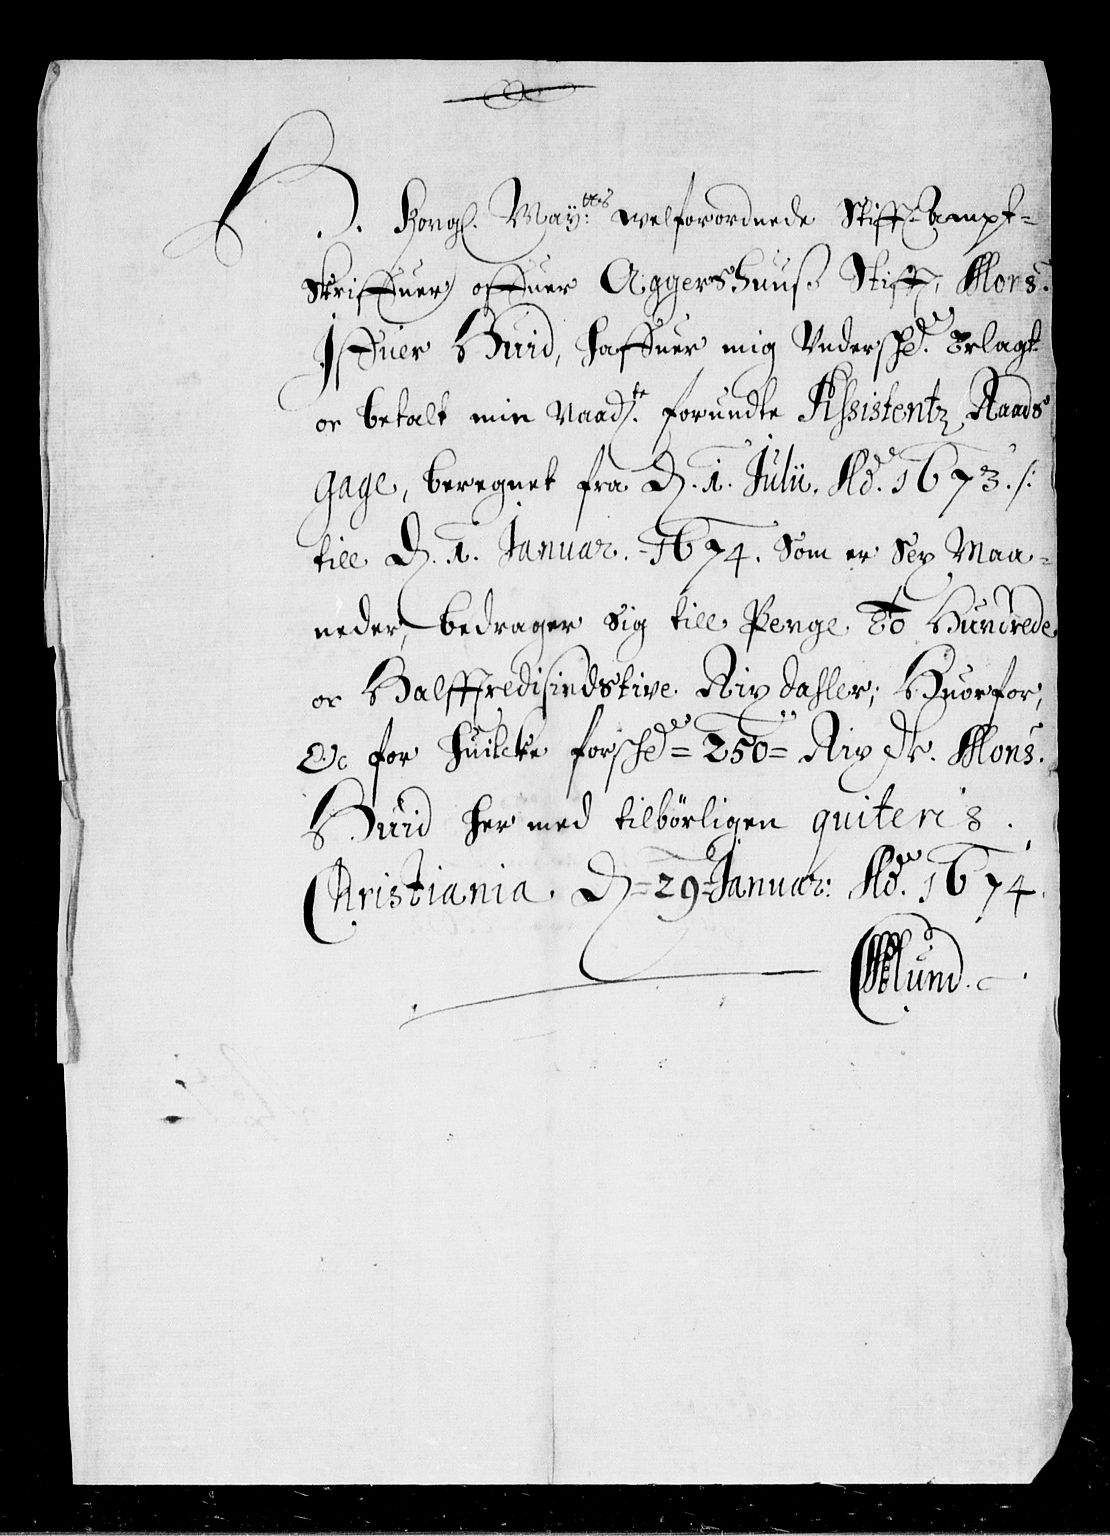 H. Kongl. May:ttes welforordnede Stifft Ampt=
skriffuer offuer Aggershuuß Stifft, Mons.
Iffuer Huid, haffuer mig Undersch:de Erlagt
oc betalt min Naad:te forundte Assistentz Raads
gage, beregnet fra D. 1. Julii. Ad. 1673. /:
till D. 1. Januar. 1674. Som er Sex Maa=
neder, bedrager sig till Penge To Hundrede
oc Halfftredisindstive Rix daller; Huorfor,
&c for huilcke forsch:de =250= Rix dr. Mons.
Huid her med tilbørligen quiteris.
Christiania. D=29=Januar: Ad. 1674.
Lund.